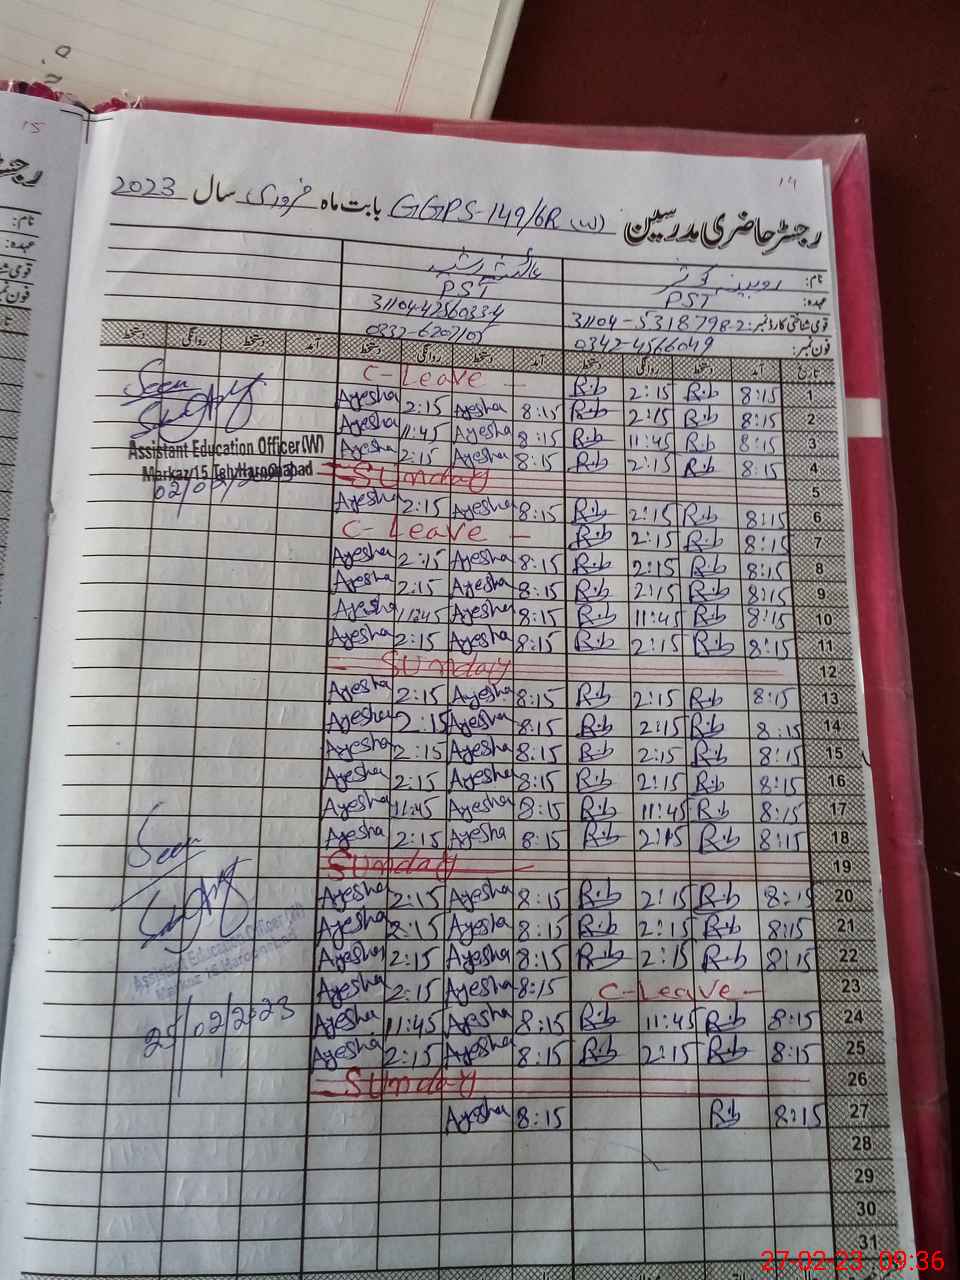 15
14
رجسٹر حاضری مدرسین GGPS-149/6R (W) بابت ماہ فروری سال 2023
نام: روبینہ کوثر
عہدہ: PST PST
قومی شناختی کارڈ نمبر: 31104-5318798-2
فون نمبر: 0342-4566049
تاریخ آمد دستخط روانگی دستخط آمد دستخط روانگی دستخط آمد دستخط روانگی دستخط
C-Leave - R.b 2:15 R.b 8:15 1
Ayesha 2:15 Ayesha 8:15 R.b 2:15 R.b 8:15 2
Ayesha 11:45 Ayesha 8:15 R.b 11:45 R.b 8:15 3
Ayesha 2:15 Ayesha 8:15 R.b 2:15 R.b 8:15 4
Sunday 5
Ayesha 2:15 Ayesha 8:15 R.b 2:15 R.b 8:15 6
C-Leave - R.b 2:15 R.b 8:15 7
Ayesha 2:15 Ayesha 8:15 R.b 2:15 R.b 8:15 8
Ayesha 2:15 Ayesha 8:15 R.b 2:15 R.b 8:15 9
Ayesha Ayesha 8:15 R.b 11:45 R.b 8:15 10
Ayesha 2:15 Ayesha 8:15 R.b 2:15 R.b 8:15 11
- Sunday 12
Ayesha 2:15 Ayesha 8:15 R.b 2:15 R.b 8:15 13
Ayesha 2:15 Ayesha 8:15 R.b 2:15 R.b 8:15 14
Ayesha 2:15 Ayesha 8:15 R.b 2:15 R.b 8:15 15
Ayesha 2:15 Ayesha 8:15 R.b 2:15 R.b 8:15 16
Ayesha 11:45 Ayesha 8:15 R.b 11:45 R.b 8:15 17
Ayesha 2:15 Ayesha 8:15 R.b 2:15 R.b 8:15 18
Sunday - 19
Ayesha 2:15 Ayesha 8:15 R.b 2:15 R.b 8:15 20
Ayesha 8:15 Ayesha 8:15 R.b 2:15 R.b 8:15 21
Ayesha 2:15 Ayesha 8:15 R.b 2:15 R.b 8:15 22
Ayesha 2:15 Ayesha 8:15 C-Leave - 23
Ayesha 11:45 Ayesha 8:15 R.b 11:45 R.b 8:15 24
Ayesha 2:15 Ayesha 8:15 R.b 2:15 R.b 8:15 25
- Sunday 26
Ayesha 8:15 R.b 8:15 27
28
29
30
31
Seen
Assistant Education Officer(W)
Markaz/15 Teh/Haroonabad
Seen
Assistant Education Officer(W)
25/02/2023
27-02-23 09:36